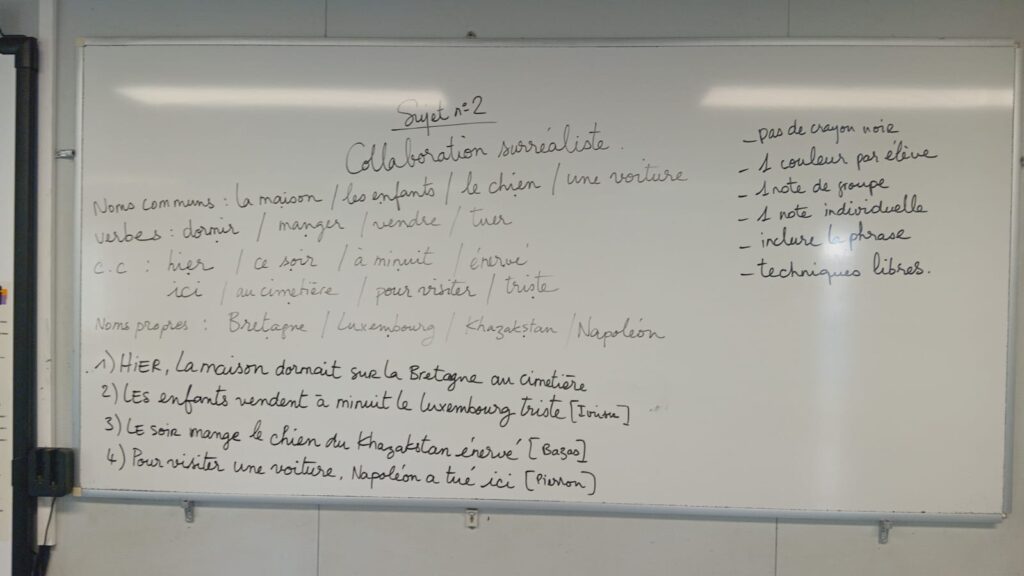 Sujet n°2
Collaboration surréaliste.
Noms communs : la maison / les enfants / le chien / une voiture
verbes : dormir / manger / vendre / tuer
c.c : hier / ce soir / à minuit / énervé
ici / au cimetière / pour visiter / triste
Noms propres : Bretagne / Luxembourg / Khazakstan / Napoléon
1) HiER, La maison dormait sur la Bretagne au cimetière
2) LES enfants vendent à minuit le Luxembourg triste
3) LE soir mange le chien du Khazakstan énervé [Bazas]
4) Pour visiter une voiture, Napoléon a tué ici [Pierron]
- pas de crayon noir
- 1 couleur par élève
- 1 note de groupe
- 1 note individuelle
- inclure la phrase
- techniques libres.